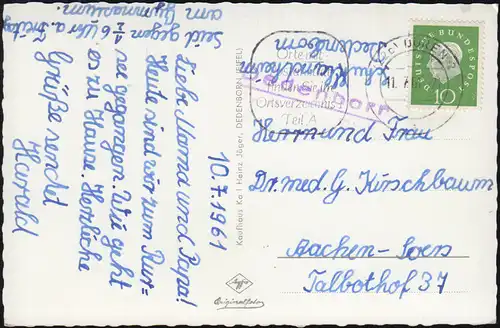 Seid gegen ½ 6 Uhr a. Freitag
am Gymnasium.
10.7.1961
Liebe Mama und Papa!
Heute sind wir zum Rur=
see gegangen. Wie geht
es zu Hause. Herzliche
Grüße sendet
Harald
Kaufhaus Ka I Heinz Jöger, DEDENBORN (EIFEL)
Agfa
Originalfoto
Schullandheim
Dedenborn
Orte mit
finden Sie im
Ortsverzeichnis
Teil A
DÜREN
11.7.61
DEUTSCHE BUNDESPOST
10
Herrn und Frau
Dr. med. G. Kirschbaum
Aachen-Soers
Talbothof 37